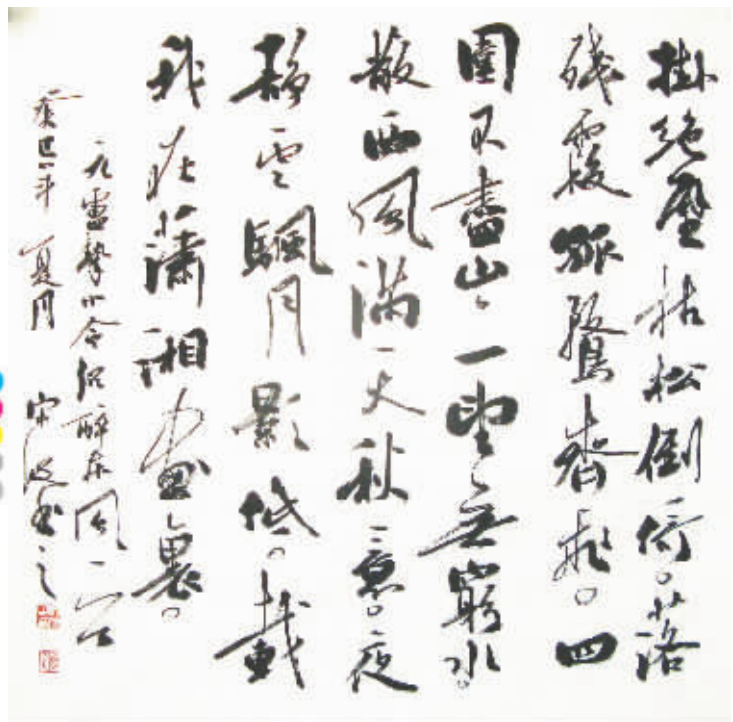 掛絕壁枯松倒倚。落
殘霞孤鶩齊飛。四
圍不盡山、一望無窮水。
散西風滿天秋意。夜
靜雲颿月影低。載
我在瀟湘畫裏。
元盧摯小令沉醉東風一首
癸巳年夏月 宋書之